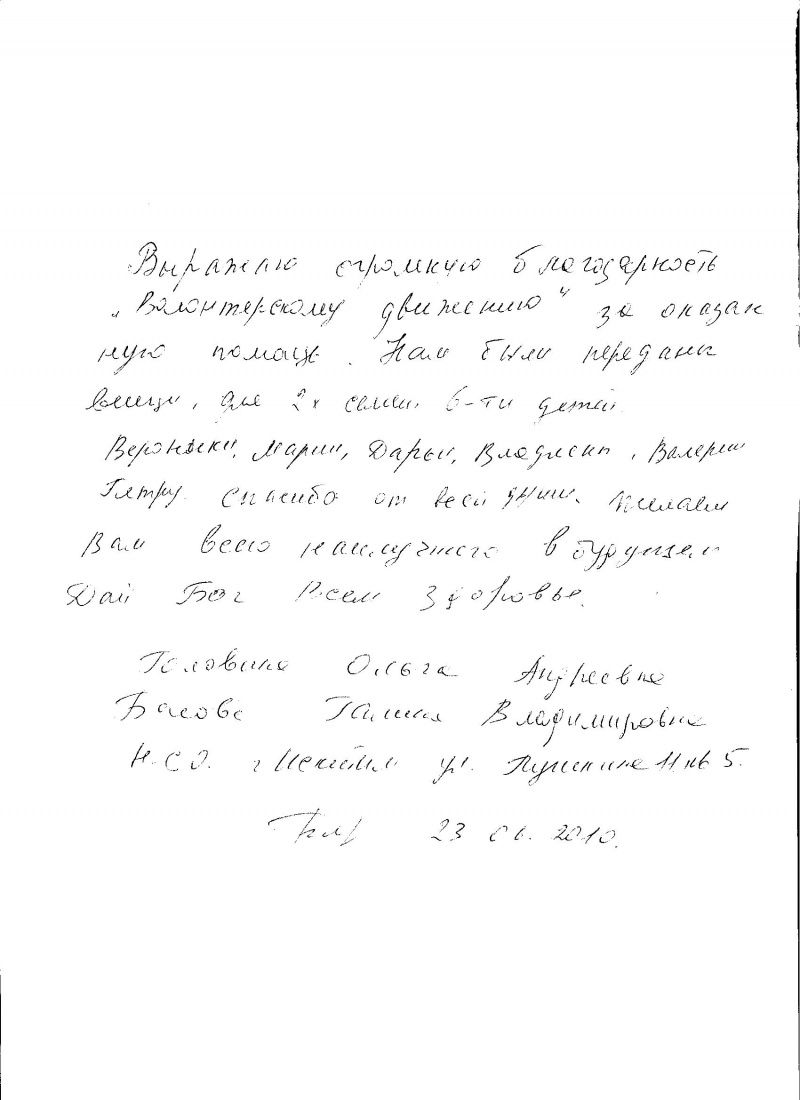 Выражаю огромную благодарность
„Волонтерскому движению" за оказан
ную помощь. Нам были переданы
вещи, для 2х семей 6-ти детей
Вероники, Марии, Дарьи, Владлены, Валерии
Петру. Спасибо от всей души. Желаем
Вам всего наилучшего в будущем
Дай Бог Всем здоровье.
Головина Ольга Андреевна
Басова Галина Владимировна
Н.С.О. г Искитим ул. Пушкина 11 кв 5.
23 06. 2010.